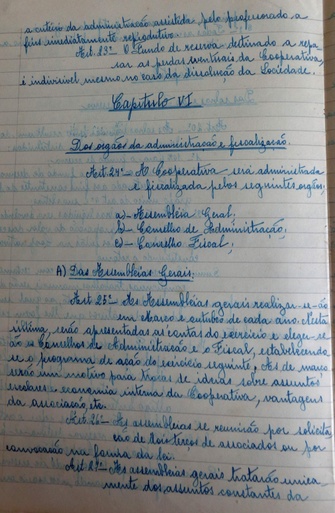 a critério da administração assistida pelo professorado a
fins imediatamente reprodutivos
Art. 23º - O Fundo de reserva destinado a repa-
rar as perdas eventuais da Cooperativa,
é indivisível mesmo no caso da dissolução da Sociedade.
Capítulo VI
Dos orgãos da administração e fiscalização.
Art. 24º - A Cooperativa será administrada
e fiscalizada pelos seguintes orgãos:
a) - Assembléia Geral;
b) - Conselho de Administração;
c) - Conselho Fiscal;
A) Das Assembléias Gerais.
Art 25º - As Assembléias gerais realizar-se-ão
em Março e outubro de cada ano. Nesta
última, serão apresentadas as contas do exercício e eleger-se-
ão os Conselhos de Administração e o Fiscal, estabelecendo-
se o programa de ação do exercício seguinte; As de março
serão um motivo para trocas de idéias sobre assuntos
escolares e economia interna da Cooperativa, vantagens
da associação, etc.
Art. 26º - As assembléias se reunirão por solicita-
ção de dois terços de associados ou por
convocação na forma da lei.
Art. 27º - As assembléias gerais tratarão unica-
mente dos assuntos constantes da